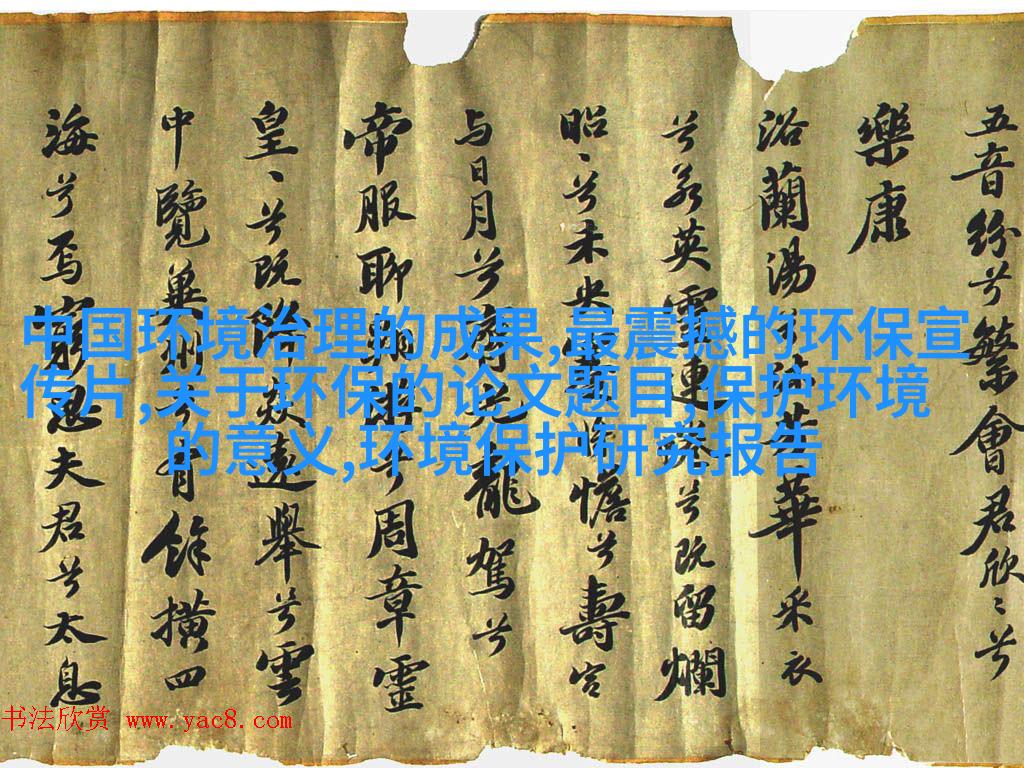 五音紛兮繁會君欣〻兮
樂康
浴蘭湯兮沐芳華采衣
兮若英靈連蜷兮既留爛
昭〻兮未央蹇將憺兮壽宮
与日月兮齊光龍駕兮
帝服聊翱遊兮周章靈
皇〻兮既降猋遠舉兮雲
中覽冀州兮有餘橫四
海兮焉窮思夫君兮太息
中国环境治理的成果,最震撼的环保宣
传片,关于环保的论文题目,保护环境
的意义,环境保护研究报告
书法欣赏 www.yac8.com